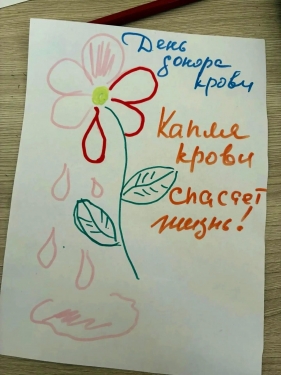 День
донора
крови
Капля
крови
спасает
жизнь!